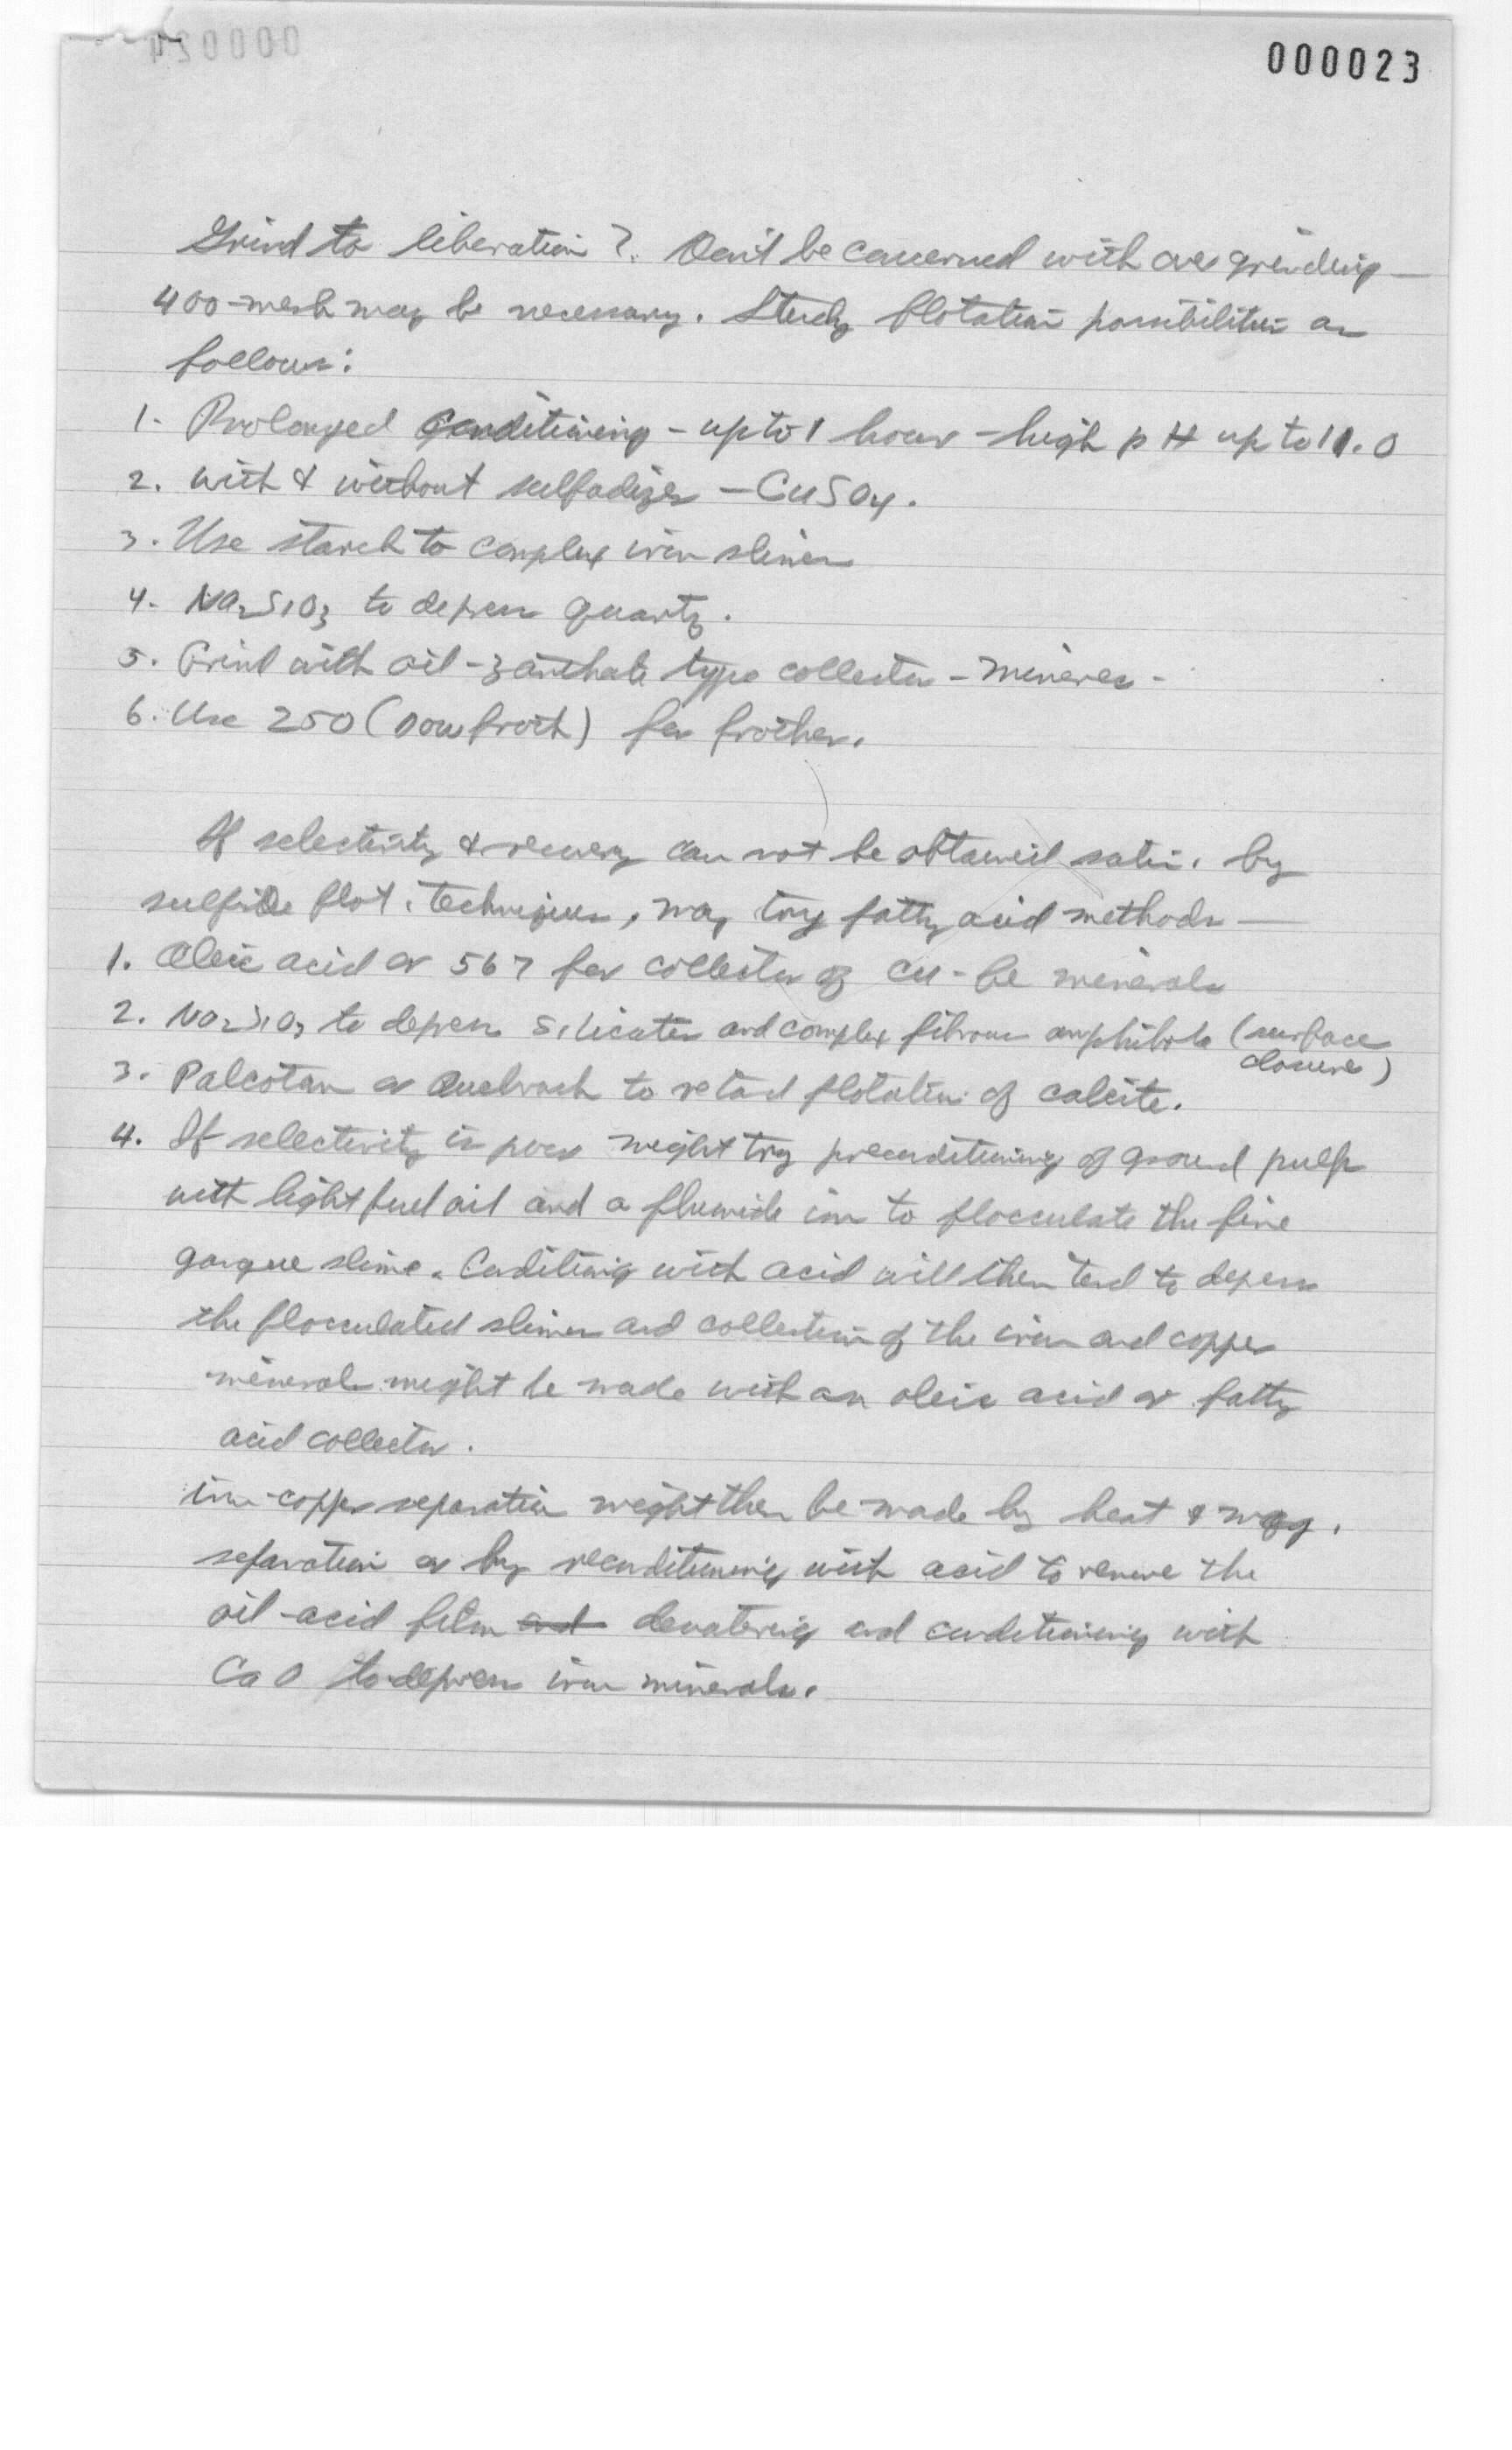 000023
Grind to liberation?. Don't be concerned with over grinding —
400-mesh may be necessary. Study flotation possibilities as
follows:
1- Prolonged Conditioning - up to 1 hour - high pH up to 11.0
2. with & without sulfadizer - CuSO4.
3. Use starch to complex iron slimes
4- Na2SiO3 to depress quartz.
5. Grind with oil - zanthate type collector - minerec -
6. Use 250 (Dowfroth) for frother.
If selectivity & recovery can not be obtained satis. by
sulfide flot. techniques, may try fatty acid methods —
1. Oleic acid or 567 for collector of Cu-Fe minerals
2. Na2SiO3 to depress silicates and complex fibrous amphibole (surface
closure)
3. Palcotan or Quebrach to retard flotation of calcite.
4. If selectivity is poor might try preconditioning of ground pulp
with light fuel oil and a fluoride ion to flocculate the fine
gangue slime. Conditioning with acid will then tend to depress
the flocculated slimes and collection of the iron and copper
minerals might be made with an oleic acid or fatty
acid collector.
iron-copper separation might then be made by heat & mag.
separation or by reconditioning with acid to remove the
oil-acid film and dewatering and conditioning with
CaO to depress iron minerals.